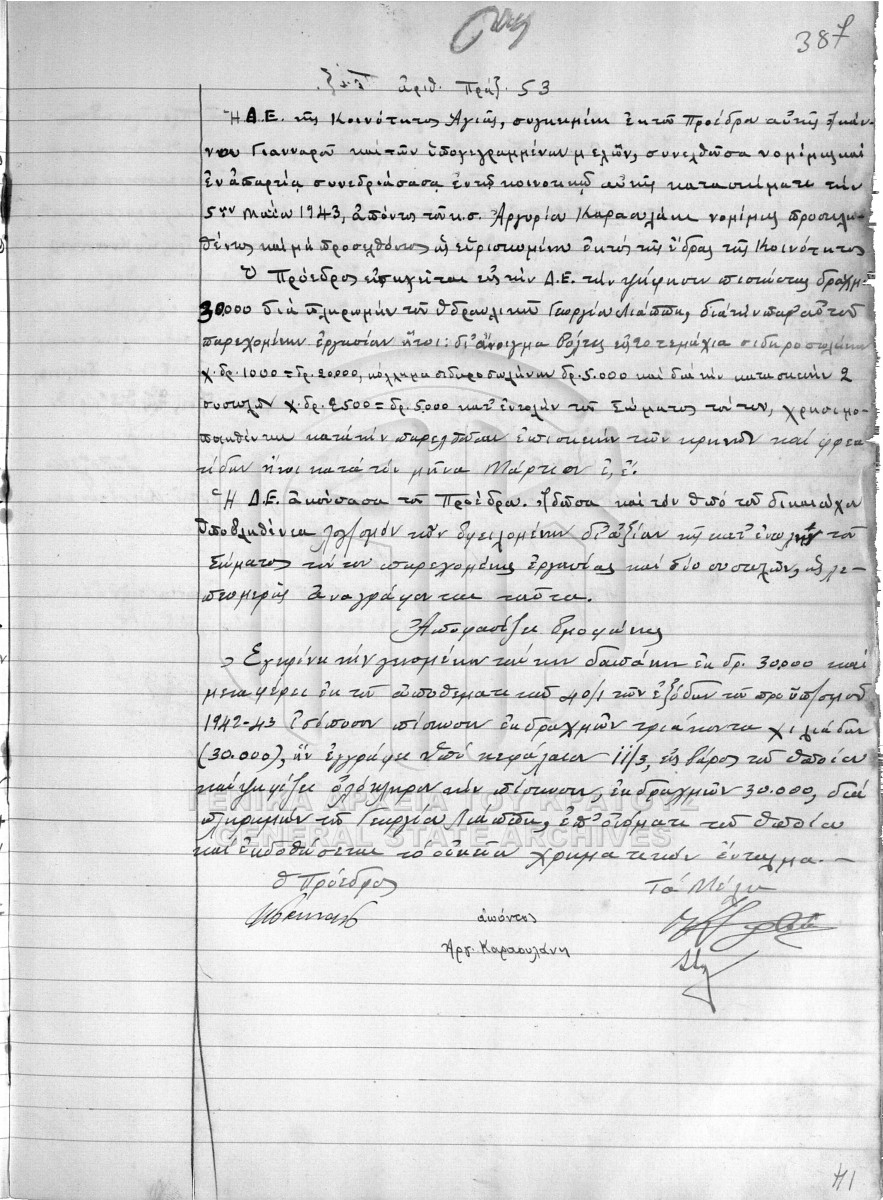 387
ἀριθ. πράξ. 53
Ἡ Δ.Ε. τῆς Κοινότητος Ἁγιᾶς, συγκειμένη ἐκ τοῦ Προέδρου αὐτῆς Ἰωάν-
νου Γιανναροῦ καὶ τῶν ὑπογεγραμμένων μελῶν, συνελθοῦσα νομίμως καὶ
ἐν ἀπαρτίᾳ συνεδριάσασα ἐντὸς κοινοτικοῦ αὐτῆς καταστήματος τὴν
5ην Μαΐου 1943, ἀπόντος τοῦ κ.σ. Ἀργυρίου Καραουλάνη νομίμως προσκλη-
θέντος καὶ μὴ προσελθόντος ὡς εὑρισκομένου ἐκτὸς τῆς ἕδρας τῆς Κοινότητος
Ὁ Πρόεδρος εἰσηγεῖται εἰς τὴν Δ.Ε. τὴν ψήφισιν πιστώσεως δραχμ.
30.000 διὰ πληρωμὴν τοῦ ὑδραυλικοῦ Γεωργίου Λιάππη, διὰ τὴν παρ' αὐτοῦ
παρεχομένην ἐργασίαν ἤτοι: δι' ἄνοιγμα βόλτες εἰς 20 τεμάχια σιδηροσωλήνων
χ. δρ. 1000 = δρ. 20.000, κόλλημα σιδηροσωλήνων δρ. 5.000 καὶ διὰ τὴν κατασκευὴν 2
συστολῶν χ. δρ. 2500 = δρ. 5000 κατ' ἐντολὴν τοῦ Σώματος τούτου, χρησιμο-
ποιηθέντα κατὰ τὴν παρελθοῦσαν ἐπισκευὴν τῶν κρηνῶν καὶ φρεα-
τίων ἤτοι κατὰ τὸν μῆνα Μάρτιον ἔ. ἔ.
Ἡ Δ.Ε. ἀκούσασα τοῦ Προέδρου. Ἰδοῦσα καὶ τὸν ὑπὸ τοῦ δικαιούχου
ὑποβληθέντα λογ/σμὸν τῶν ὀφειλομένων δι' ἀξίαν τῆς κατ' ἐντολὴν τοῦ
Σώματος τούτου παρεχομένης ἐργασίας καὶ δύο συστολῶν, ὡς λε-
πτομερῶς ἀναγράφονται ταῦτα.
Ἀποφασίζει ὁμοφώνως
Ἐγκρίνει τὴν γενομένην ταύτην δαπάνην ἐκ δρ. 30.000 καὶ
μεταφέρει ἐκ τοῦ ἀποθεματικοῦ 40/1 τῶν ἐξόδων τοῦ προϋπ/σμοῦ
1942-43 ἰσόποσον πίστωσιν ἐκ δραχμῶν τριάκοντα χιλιάδων
(30.000), ἣν ἐγγράφει ὑπὸ κεφάλαιον 11/3, εἰς βάρος τοῦ ὁποίου
καὶ ψηφίζει ὁλόκληρον τὴν πίστωσιν, ἐκ δραχμῶν 30.000, διὰ
πληρωμὴν τοῦ Γεωργίου Λιάππη, ἐπ' ὀνόματι τοῦ ὁποίου
καὶ ἐκδοθήσεται τὸ οἰκεῖον χρηματικὸν ἔνταλμα.—
Ὁ Πρόεδρος
Τὰ Μέλη
ἀπόντος
Ἀργ. Καραουλάνη
ΓΕΝΙΚΑ ΑΡΧΕΙΑ ΤΟΥ ΚΡΑΤΟΥΣ
GENERAL STATE ARCHIVES
41